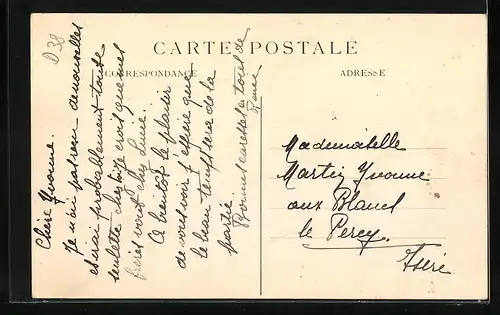 D38
CARTE POSTALE
CORRESPONDANCE
ADRESSE
Chère Yvonne.
Je n'ai pas reçu de nouvelles
et irai probablement toute
seulette chez toi je crois que mes
frères vont chez Lune.
A bientôt le plaisir
de vous voir j'espère que
le beau temps sera de la
partie.
Bonnes caresses à tous de
Renée
Mademoiselle
Martin Yvonne
aux Blancs
le Percy.
Isère